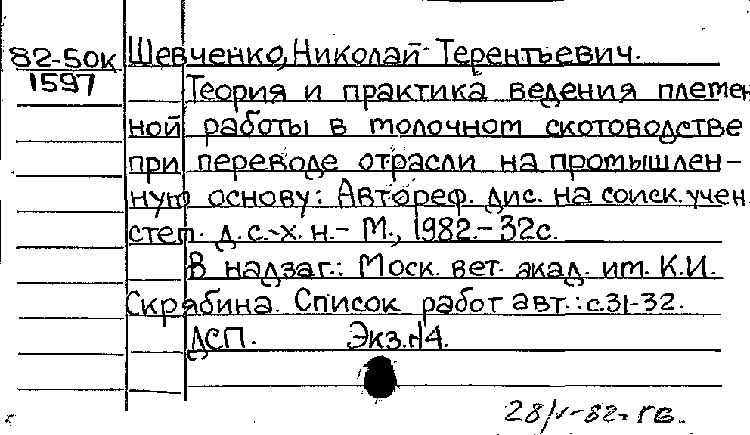 82-50к Шевченко, Николай Терентьевич.
1597 Теория и практика ведения племен
ной работы в молочном скотоводстве
при переводе отрасли на промышлен-
ную основу: Автореф. дис. на соиск. учен.
степ. д. с.-х. н. - М., 1982. - 32с.
В надзаг.: Моск. вет. акад. им. К.И.
Скрябина. Список работ авт.: с.31-32.
ДСП. Экз.№4.
28/V-82. гв.